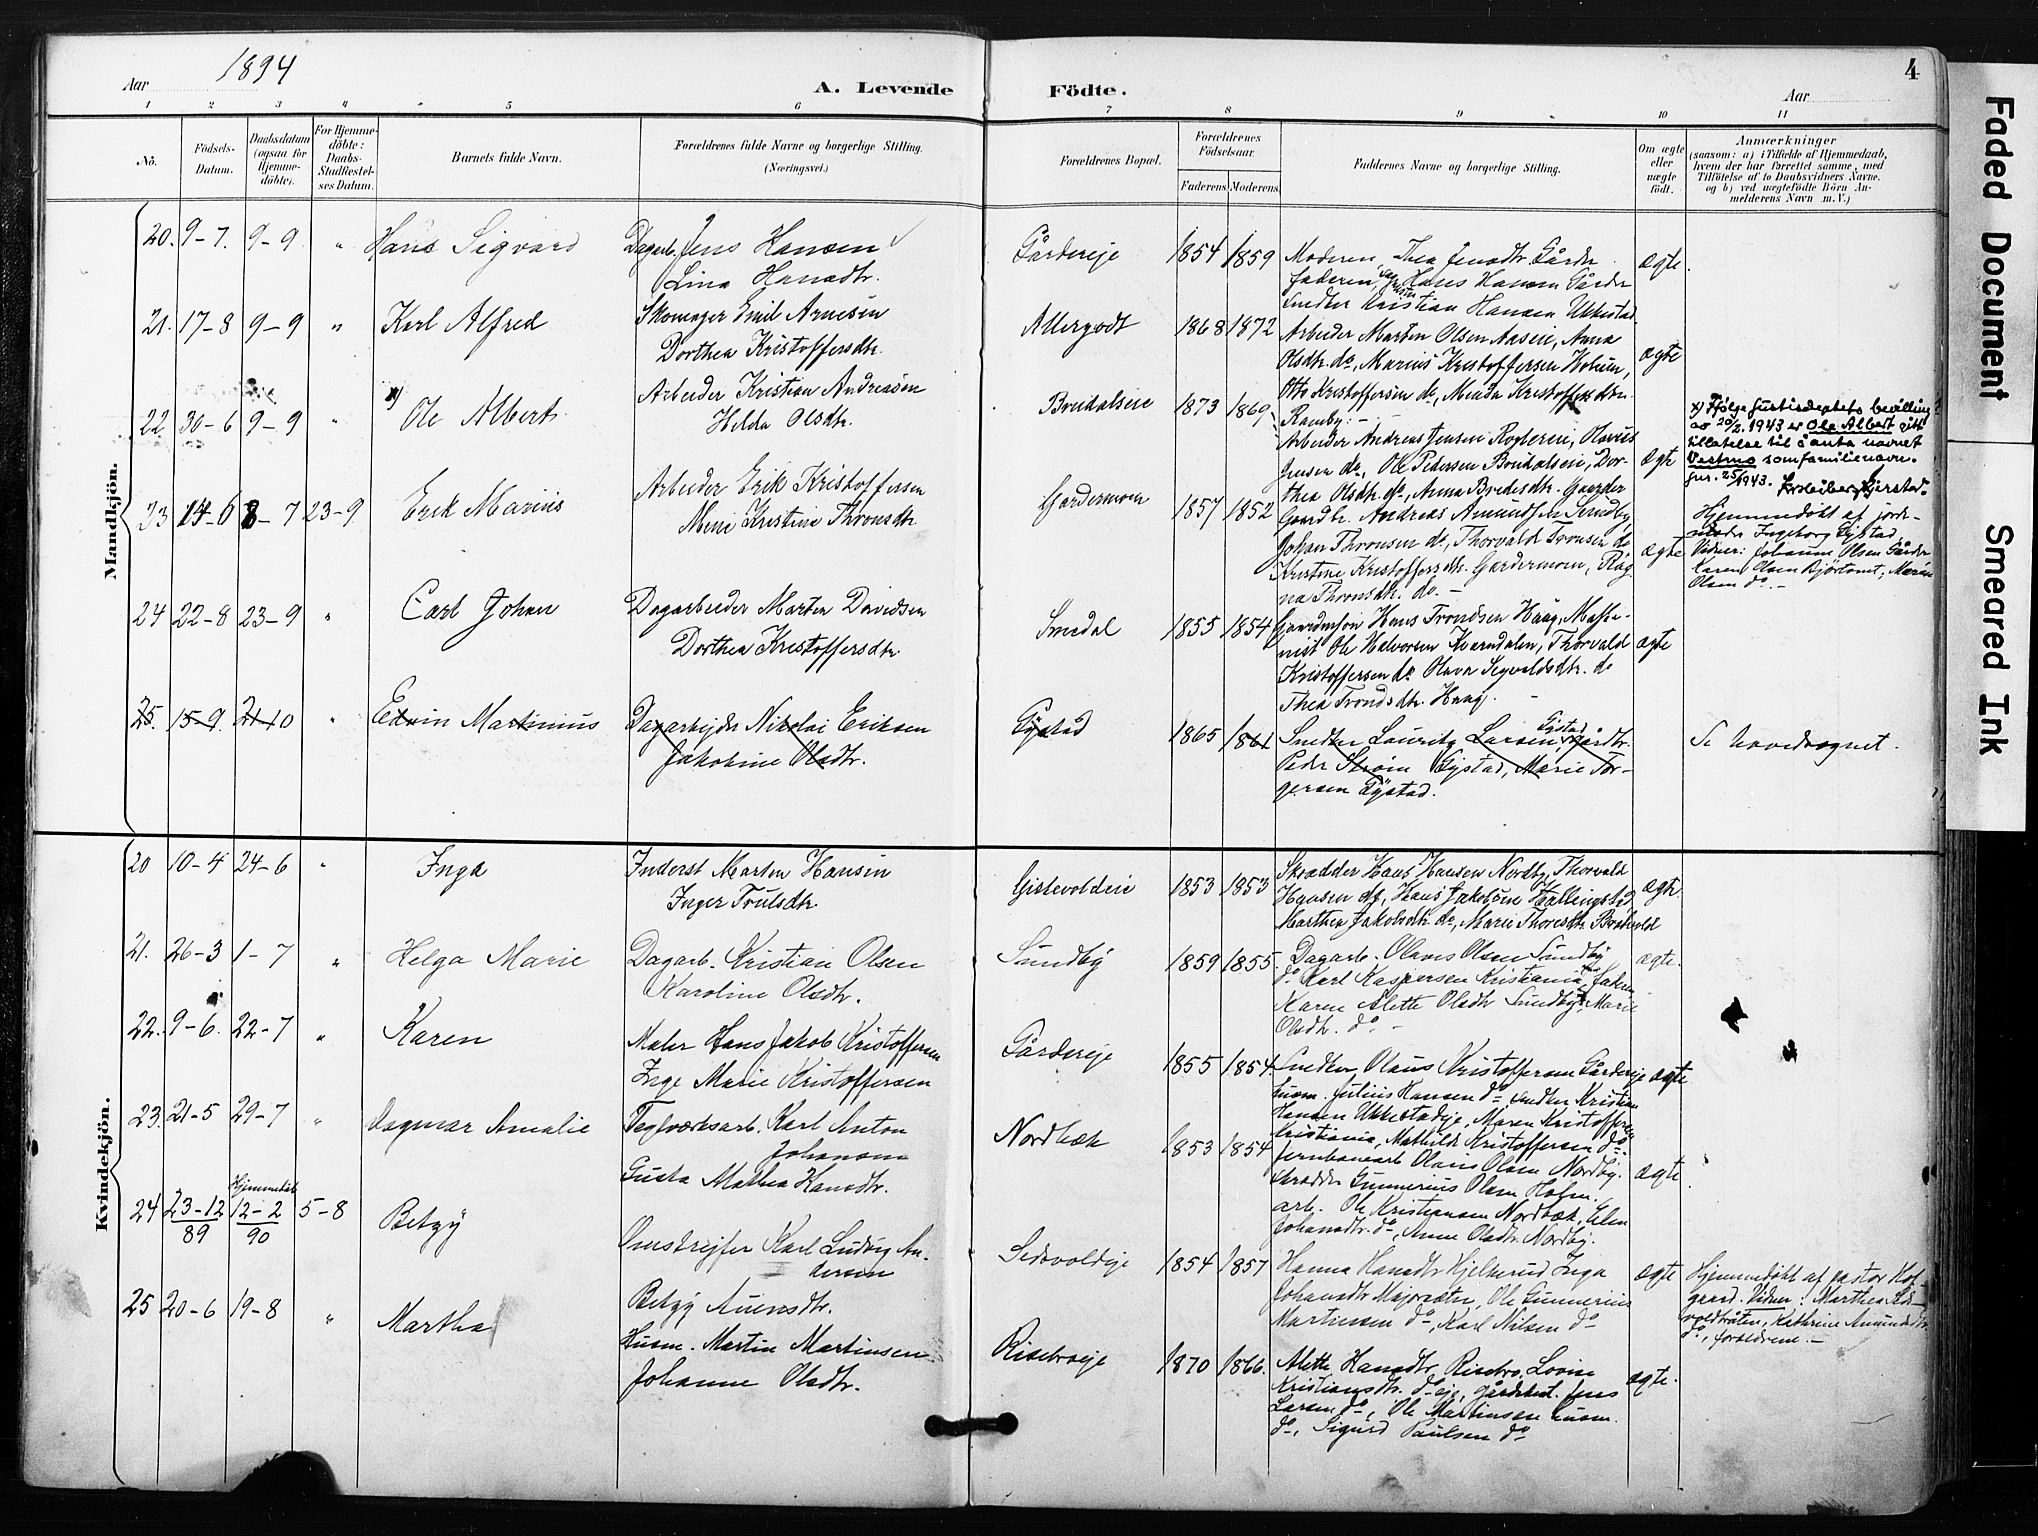 Aar 1894
A. Levende Födte.
4
Aar
1 2 3 4 5 6 7 8 9 10 11
No.
Födsels-Datum.
Daabsdatum (ogsaa for Hjemme-döbte).
For Hjemme-döbte: Daabs-Stadfæstel-ses Datum.
Barnets fulde Navn.
Forældrenes fulde Navne og borgerlige Stilling.
(Næringsvei.)
Forældrenes Bopæl.
Forældrenes Födselsaar.
Faderens. Moderens.
Faddernes Navne og borgerlige Stilling.
Om ægte eller uægte födt.
Anmærkninger
(saasom: a) i Tilfælde af Hjemmedaab,
hvem der har forrettet samme, med
Tilföielse af to Daabsvidners Navne,
og b) ved uægtefödte Börn An-
melderens Navn m. V.)
Mandkjön.
20. 9-7. 9-9 " Hans Sigvard
Dagarb. Jens Hansen
Lina Hansdtr.
Gårdereje 1854 1859
Moderen, Thea Jensdtr. Gårder
Faderen, Hans Hansen Gårder
Snedker Kristian Hansen Ukkestad
ægte.
21. 17-8 9-9 " Karl Alfred
Skomager Emil Arnesen
Dorthea Kristoffersdtr.
Allergodt 1868 1872
Arbeider Marten Olsen Aaseie, Anna
Olsdtr. do, Marius Kristoffersen Holum,
Otto Kristoffersen do, Menda Kristoffersdtr.
Ramby. -
ægte
22 30-6 9-9 " x) Ole Albert
Arbeider Kristian Andreasen
Helda Olsdtr.
Brudalseie 1873 1869
Arbeider Andreas Jensen Rogtereie, Olavus
Jensen do, Ole Pedersen Brudalseie, Dor-
thea Olsdtr. do, Anna Bredesdtr. Gaarder
ægte
x) Ifølge Justisdeptets bevilling
av 20/2. 1943 er Ole Albert gitt
tillatelse til å anta navnet
Vestmo som familienavn.
23 14-6 8-7 23-9 Erik Marius
Arbeider Erik Kristoffersen
Meni Kristine Thronsdtr.
Gardermoen 1857 1852
Gaardbr. Andreas Amundsen Sundby,
Johan Thronsen do, Thorvald Tronsen do
Kristine Kristoffersdtr. Gardermoen, Rag
na Thronsdtr. do. -
ægte
Hjemmedøbt af jorde-
moder Ingeborg Gystad
Vidner: Johanne Olsen Gårder
Karen Olsen Bjørtomt, Maren
Olsen do. -
24 22-8 23-9 " Carl Johan
Dagarbeider Marten Davidsen
Dorthea Kristoffersdtr
Smedal 1855 1854
Gaardmson Hans Trondsen Haag, Maski-
nist Ole Halvorsen Kverndalen, Thorvald
Kristoffersen do. Olava Sigvaldsdtr. do
Thea Trondsdtr. Haag. -
ægte
25. 15-9. 21-10 " Edvin Martinius
Dagarbejder Nikolai Eriksen
Jakobine Olsdtr.
Gystad 1865 1861
Snedker Lauritz Larsen Gystad, gårdbr.
Peder Strøm Gystad, Marie Tor-
gersen Gystad.
Se hovedsognet.
Kvindekjön.
20 10-4 24-6 " Inga
Inderst Marten Hansen
Inger Trulsdtr.
Gistevoldeie 1853 1853
Skrædder Hans Hansen Nordby, Thorvald
Hansen do, Hans Jakobsen Hallingstad
Marthea Jakobsdtr. do, Marie Thoresdtr
ægte.
21. 26-3 1-7 " Helga Marie
Dagarb. Kristian Olsen
Karoline Olsdtr.
Sundby 1859 1855.
Dagarb. Olavus Olsen Sundby
do. Karl Kaspersen Kristiania, Faderen
Karen Alette Olsdtr Sundby, Marie
Olsdtr. do. -
ægte.
22. 9-6. 22-7 " Karen
Maler Hans Jakob Kristoffersen
Inge Marie Kristoffersen
Gårdereje 1855 1854.
Snedker Olaus Kristoffersen Gårdereje
husm. Julius Hansen do Snedker Kristian
Hansen Ukkestadeje, Maren Kristoffersen
Kristiania, Mathilde Kristoffersen do.
ægte
23. 21-5 29-7 " Dagmar Amalie
Teglværksarb. Karl Anton
Johansen
Gusta Mathea Hansdtr.
Nordbæk 1853 1854
Jernbanearb Olaus Olsen Nordby.
Skrædder Gunnerius Olsen Holm.
arb. Ole Kristiansen Nordbæk, Elen
Johansdtr. do, Anne Olsdtr. Nordby.
ægte
24 23-12 89 Hjemmedøb 12-2 90 5-8 Betzy
Omstrejfer Karl Ludvig An-
dersen
Betzy Auensdtr.
Sedsvoldeje 1854 1857
Hanna Hansdtr Hjelkerud Inga
Johansdtr. Majorsætr, Ole Gunnerius
Martinsen do, Karl Nilsen do
ægte
Hjemmedøbt af pastor Hof-
gaard. Vidner: Marthea Sds-
voldbråten, Kathrine Amundsdtr.
do, forældrene. -
25 20-6 19-8 " Martha
Husm. Martin Martinsen
Johanne Olsdtr.
Risebroeje 1870 1866.
Alette Hansdtr. Risebro, Lovise
Kristiansdtr. do eje, gårdbest. Jens
Larsen do, Ole Martinsen husm.
do, Sigurd Paulsen do
ægte.
Faded Document
Smeared Ink